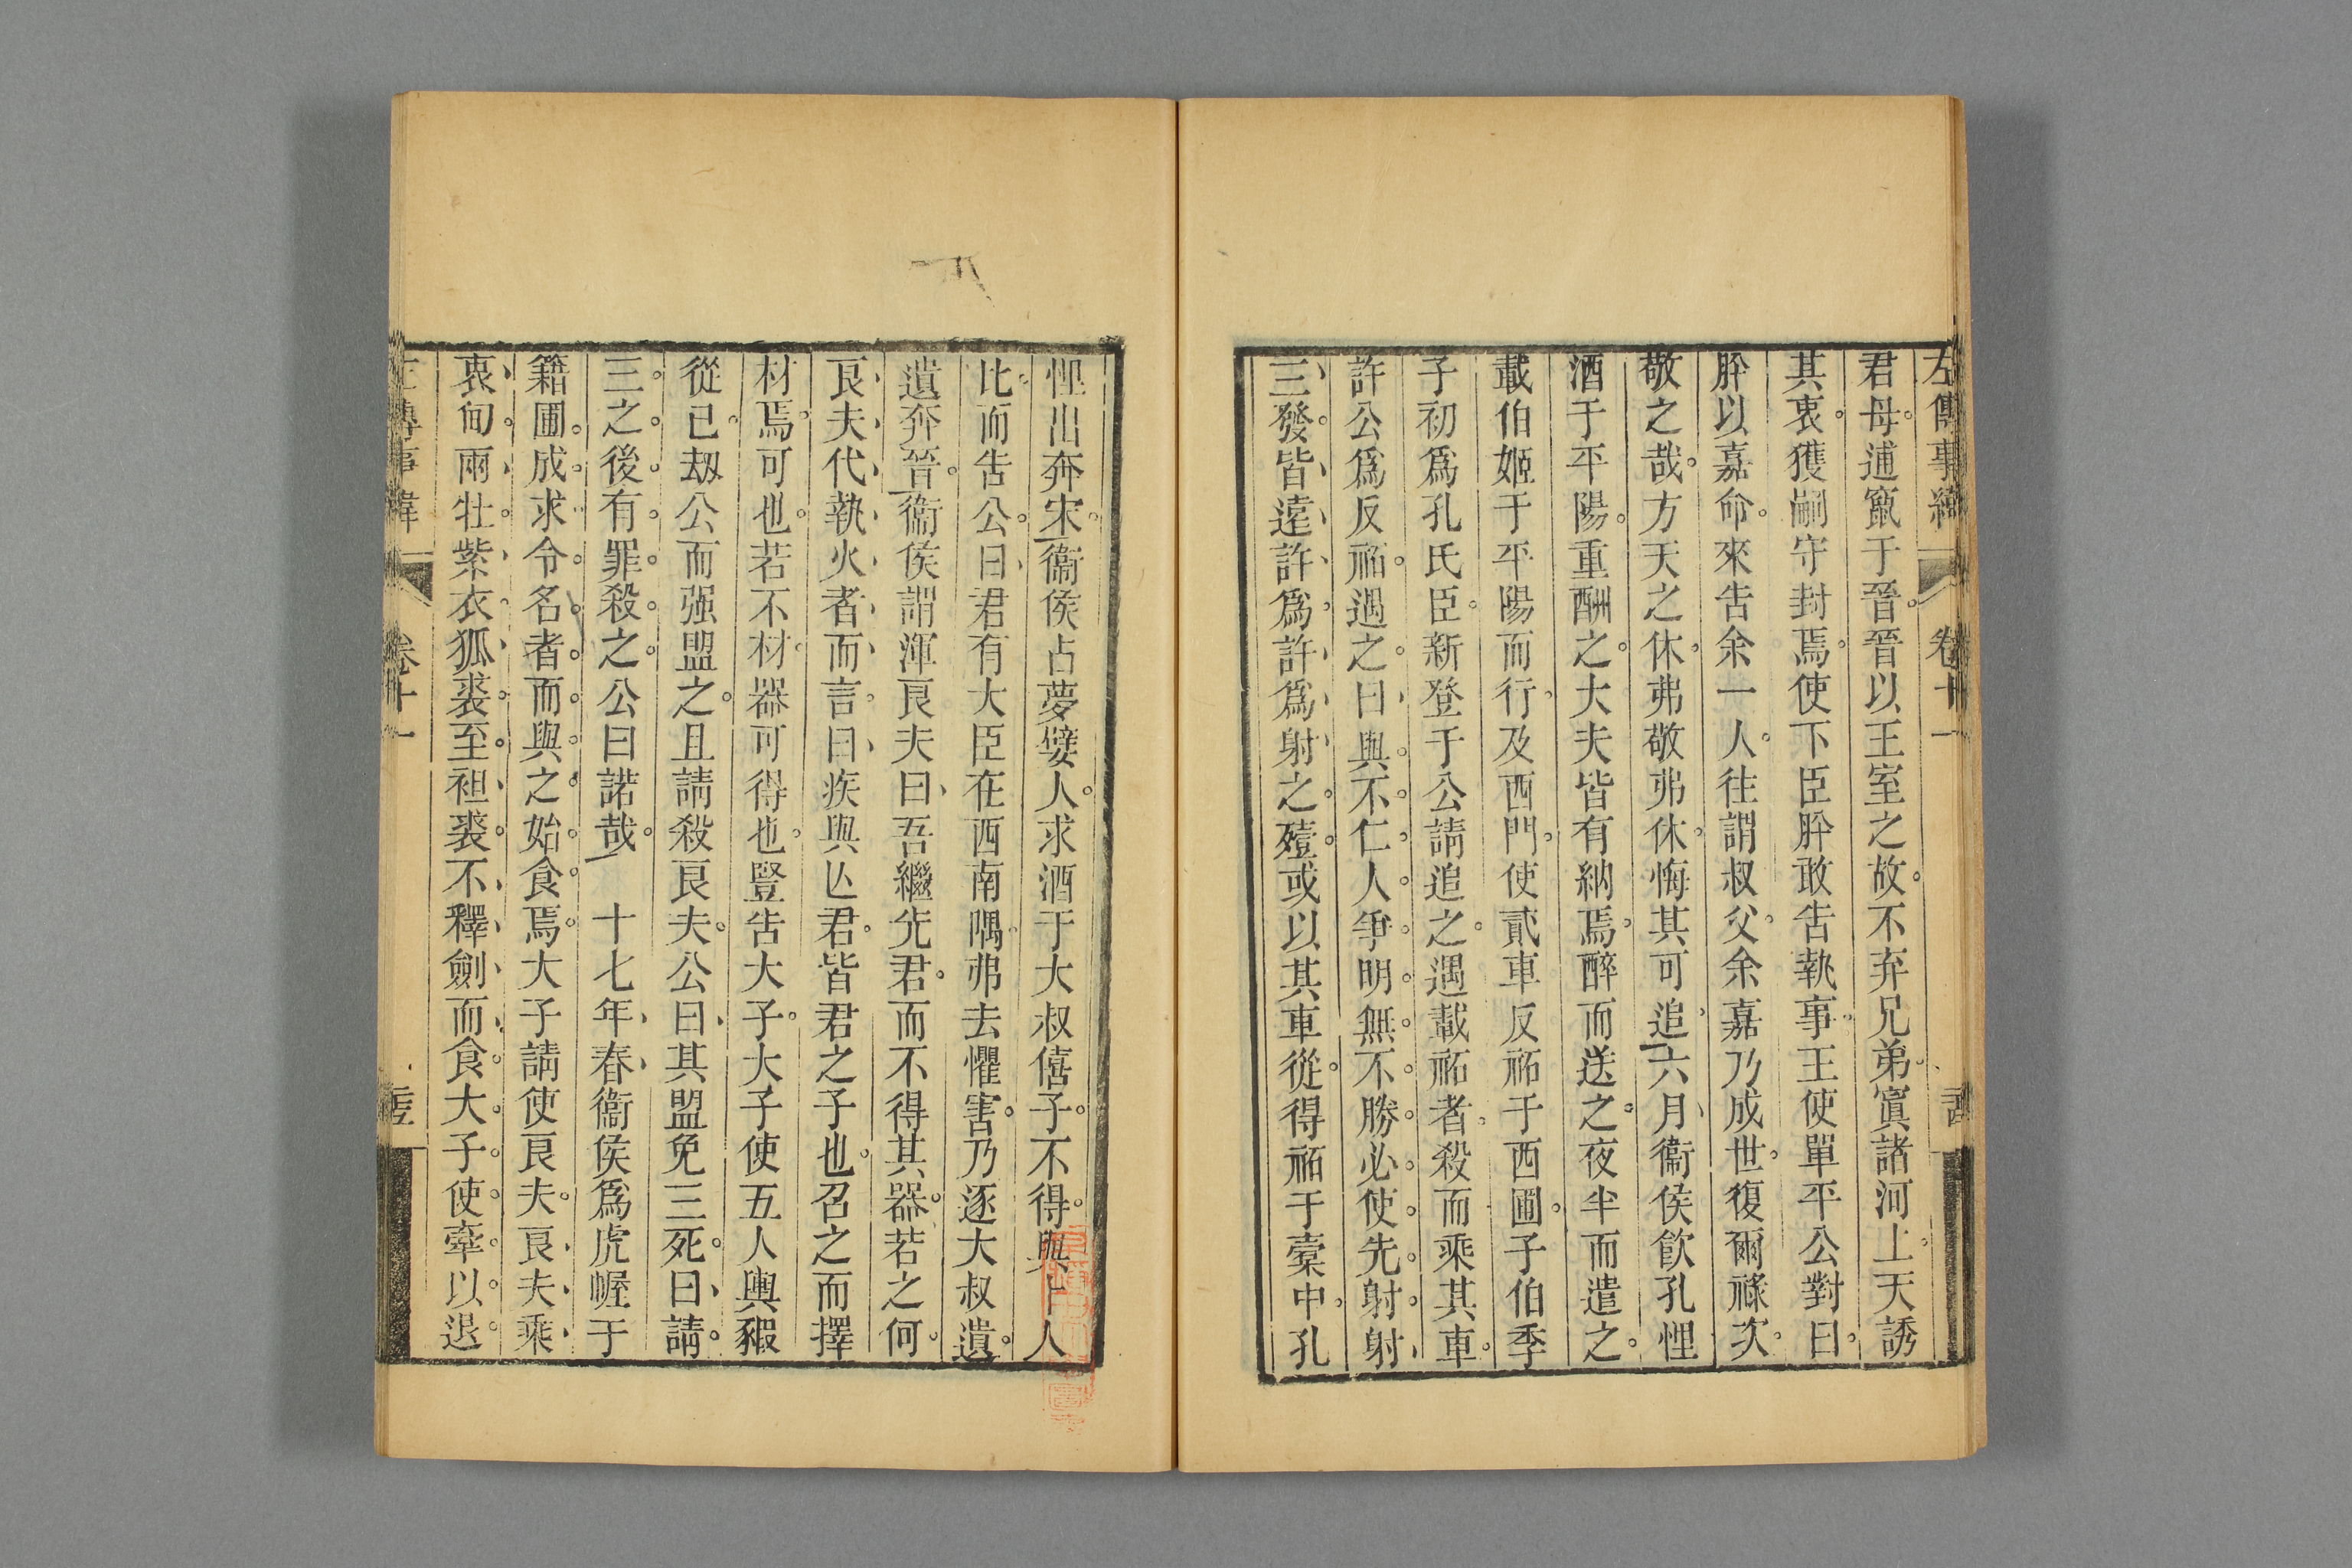 左傳事緯 卷十一
君母逋竄于晉晉以王室之故不弃兄弟寘諸河上天誘
其衷獲嗣守封焉使下臣肸敢告執事王使單平公對曰
肸以嘉命來告余一人往謂叔父余嘉乃成世復爾祿次
敬之哉方天之休弗敬弗休悔其可追六月衞侯飮孔悝
酒于平陽重酬之大夫皆有納焉醉而送之夜半而遣之
載伯姬于平陽而行及西門使貳車反祏于西圃子伯季
子初爲孔氏臣新登于公請追之遇載祏者殺而乘其車
許公爲反祏遇之曰與不仁人爭明無不勝必使先射射
三發皆遠許爲許爲射之殪或以其車從得祏于橐中孔
悝出奔宋衞侯占夢嬖人求酒于大叔僖子不得與卜人
比而告公曰君有大臣在西南隅弗去懼害乃逐大叔遺
遺奔晉衞侯謂渾良夫曰吾繼先君而不得其器若之何
良夫代執火者而言曰疾與亾君皆君之子也召之而擇
材焉可也若不材器可得也豎告大子大子使五人輿豭
從已劫公而强盟之且請殺良夫公曰其盟免三死曰請
三之後有罪殺之公曰諾哉 十七年春衞侯爲虎幄于
籍圃成求令名者而與之始食焉大子請使良夫良夫乘
衷甸兩牡紫衣狐裘至袒裘不釋劍而食大子使牽以退
左傳事緯 卷十一